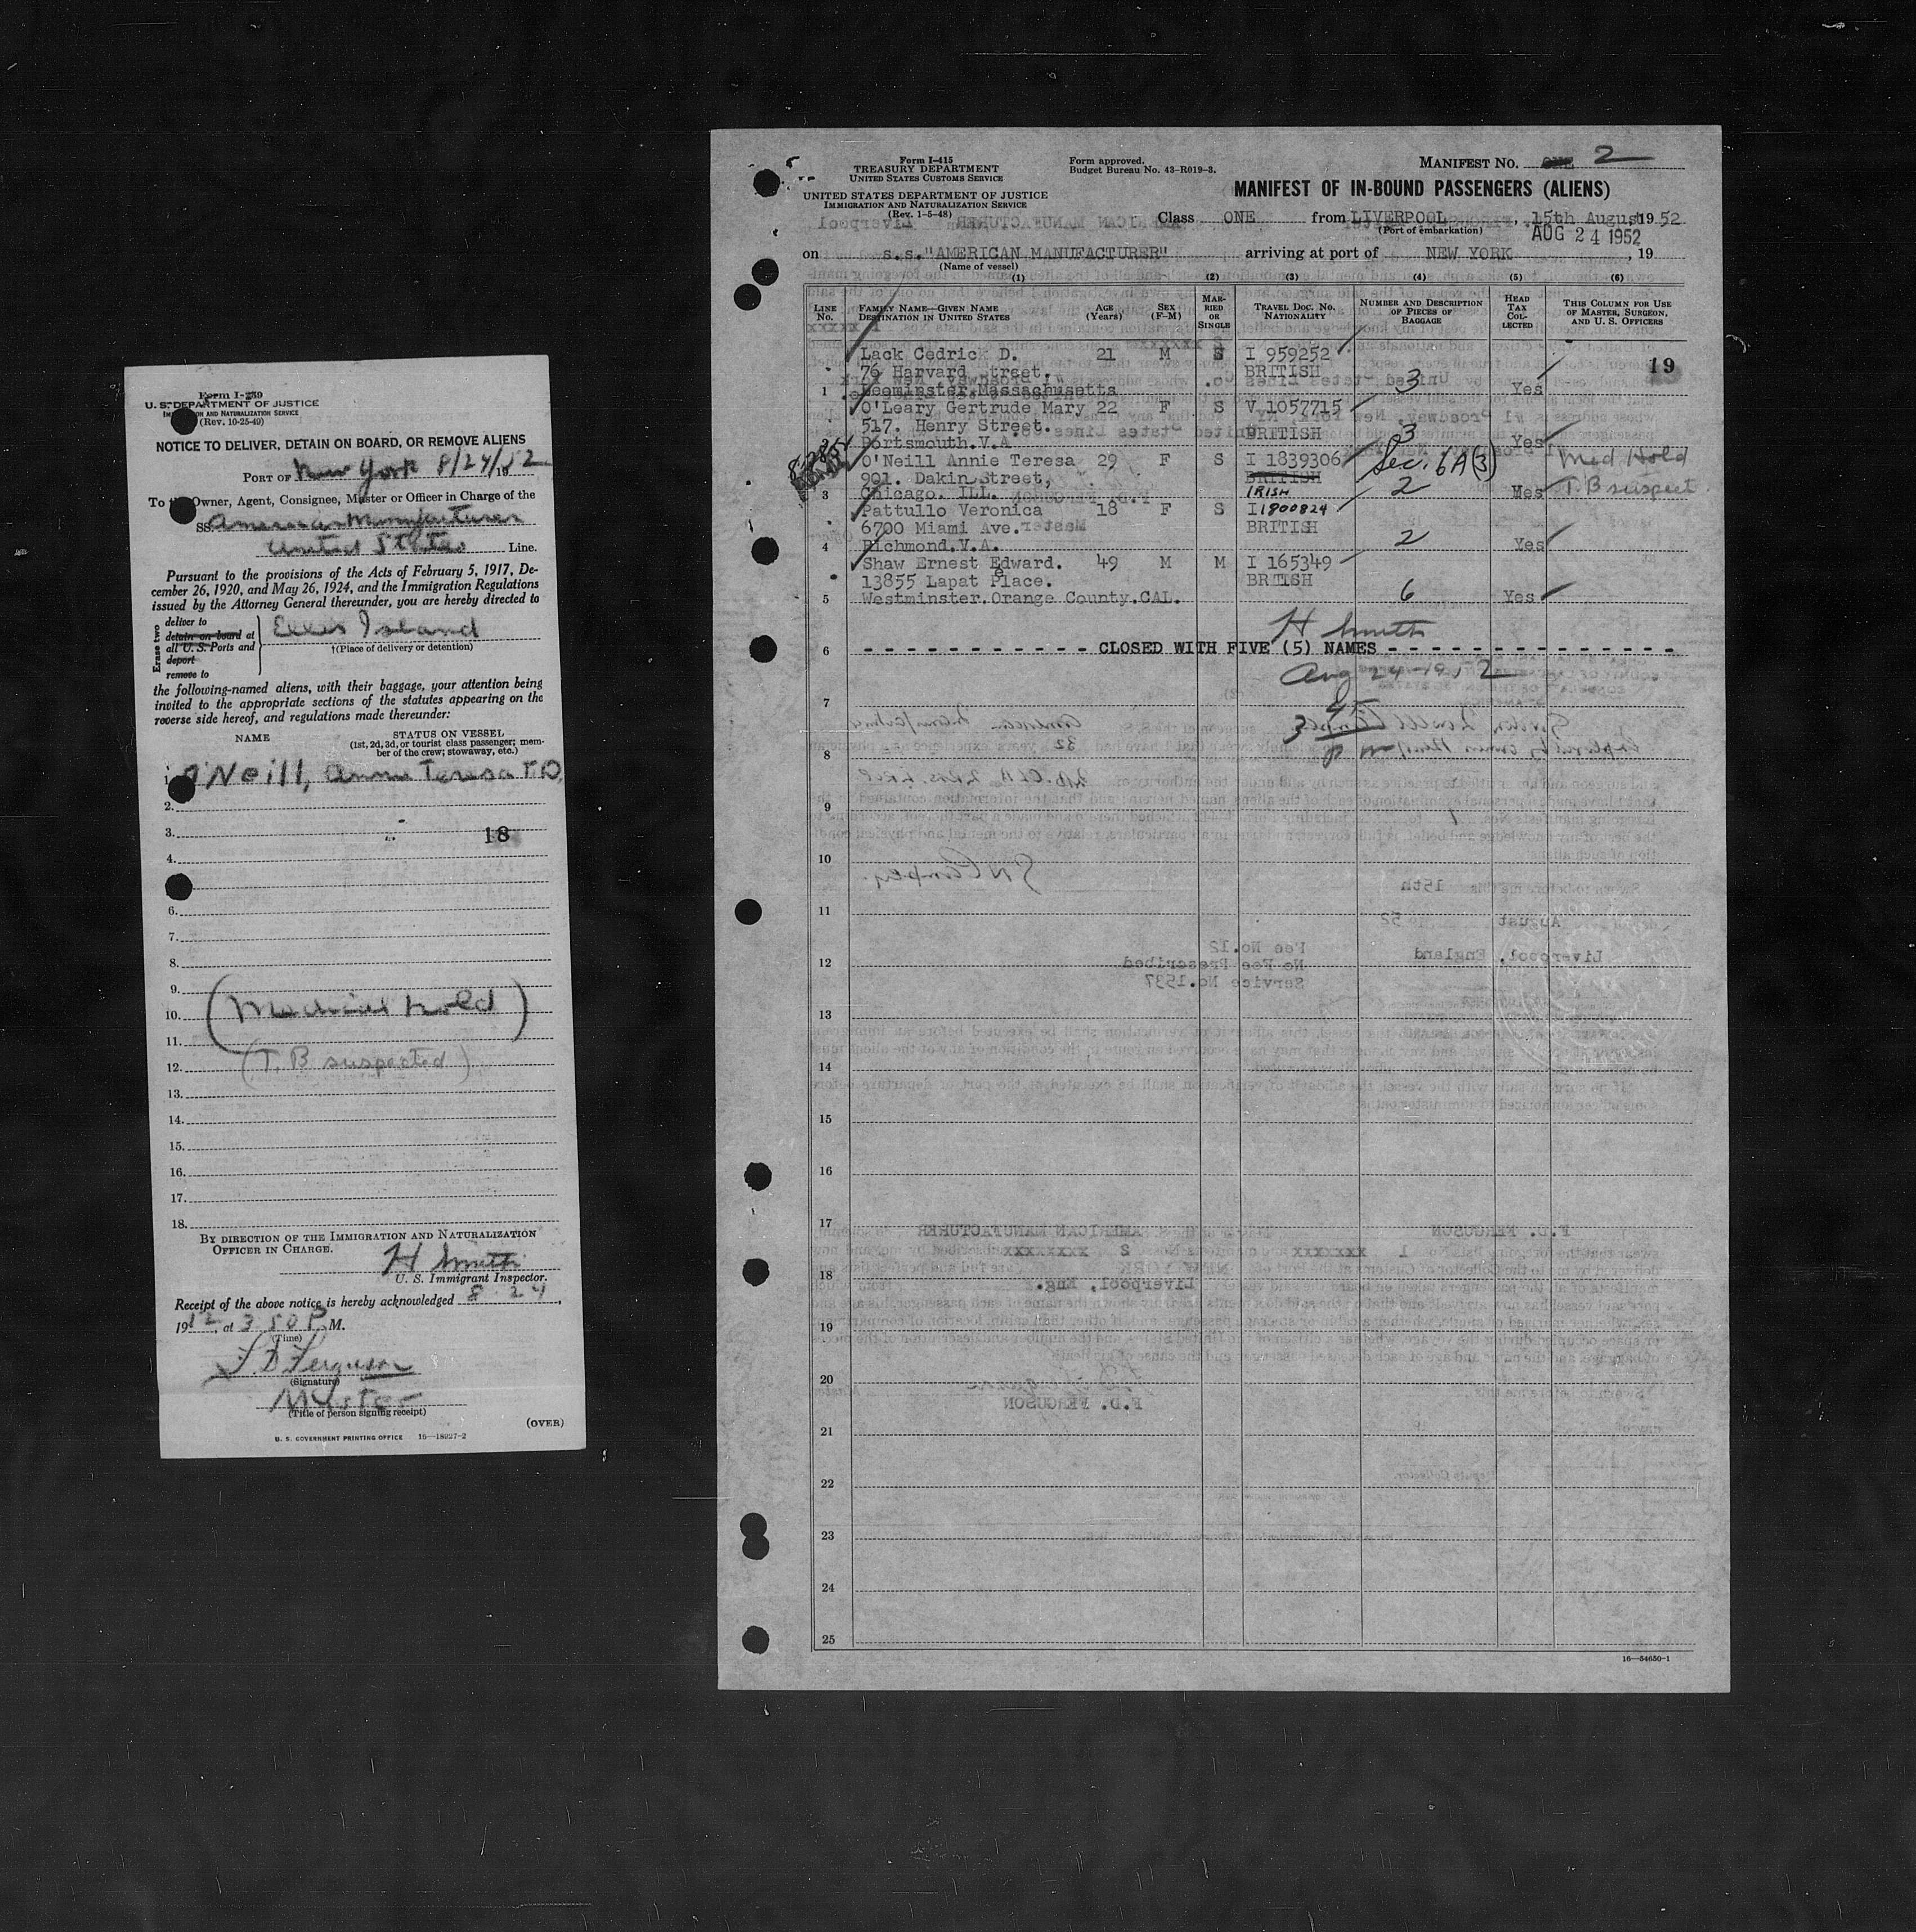 Form I-259
U. S. DEPARTMENT OF JUSTICE
IMMIGRATION AND NATURALIZATION SERVICE
(Rev. 10-25-49)
NOTICE TO DELIVER, DETAIN ON BOARD, OR REMOVE ALIENS
PORT OF New York 8/24/1952
To the Owner, Agent, Consignee, Master or Officer in Charge of the
SS. American Manufacturer
United States Line.
Pursuant to the provisions of the Acts of February 5, 1917, De-
cember 26, 1920, and May 26, 1924, and the Immigration Regulations
issued by the Attorney General thereunder, you are hereby directed to
Erase two
deliver to
detain on board at
all U. S. Ports and
deport
remove to
Ellis Island
†(Place of delivery or detention)
the following-named aliens, with their baggage, your attention being
invited to the appropriate sections of the statutes appearing on the
reverse side hereof, and regulations made thereunder:
NAME
STATUS ON VESSEL
(1st, 2d, 3d, or tourist class passenger; mem-
ber of the crew; stowaway, etc.)
1. O'Neill, Annie Teresa
2.
3.
18
4.
6.
7.
8.
9.
10. (Medical hold)
11.
12. (T. B suspected)
13.
14.
15.
16.
17.
18.
BY DIRECTION OF THE IMMIGRATION AND NATURALIZATION
OFFICER IN CHARGE.
H Smith
U. S. Immigrant Inspector.
Receipt of the above notice is hereby acknowledged 8-24,
1952, at 3 50 P. M.
(Time)
F. D Ferguson
(Signature)
Master
(Title of person signing receipt)
(OVER)
U. S. GOVERNMENT PRINTING OFFICE 16—18927-2
Form I-415
TREASURY DEPARTMENT
UNITED STATES CUSTOMS SERVICE
UNITED STATES DEPARTMENT OF JUSTICE
IMMIGRATION AND NATURALIZATION SERVICE
(Rev. 1-5-48)
Form approved.
Budget Bureau No. 43-R019-3.
MANIFEST NO. ONE 2
MANIFEST OF IN-BOUND PASSENGERS (ALIENS)
Class ONE from LIVERPOOL, 15th August 1952
(Port of embarkation)
AUG 24 1952
on s.s."AMERICAN MANUFACTURER" arriving at port of NEW YORK, 19
(Name of vessel)
(1) (2) (3) (4) (5) (6)
LINE No.
FAMILY NAME—GIVEN NAME
DESTINATION IN UNITED STATES
AGE (Years)
SEX (F-M)
MARRIED OR SINGLE
TRAVEL DOC. NO. NATIONALITY
NUMBER AND DESCRIPTION OF PIECES OF BAGGAGE
HEAD TAX COLLECTED
THIS COLUMN FOR USE OF MASTER, SURGEON, AND U. S. OFFICERS
Lack Cedrick D. 21 M S I 959252
76 Harvard Street. BRITISH 19
1 Leominster.Massachusetts 3 Yes
O'Leary Gertrude Mary 22 F S V 1057715
517. Henry Street. BRITISH
Portsmouth.V.A. 3 Yes
O'Neill Annie Teresa 29 F S I 1839306 Sec. 6A(3) Med Hold
901. Dakin Street, BRITISH
3 Chicago. ILL. IRISH 2 Yes T. B suspect
Pattullo Veronica 18 F S I 1800824
6700 Miami Ave. BRITISH
4 Richmond.V.A. 2 Yes
Shaw Ernest Edward. 49 M M I 165349
13855 Lapat Place. BRITISH
5 Westminster.Orange County.CAL. 6 Yes
H Smith
6 CLOSED WITH FIVE (5) NAMES
Aug 24-1952
7
8
9
10
11
12
13
14
15
16
17
18
19
20
21
22
23
24
25
16—54650-1